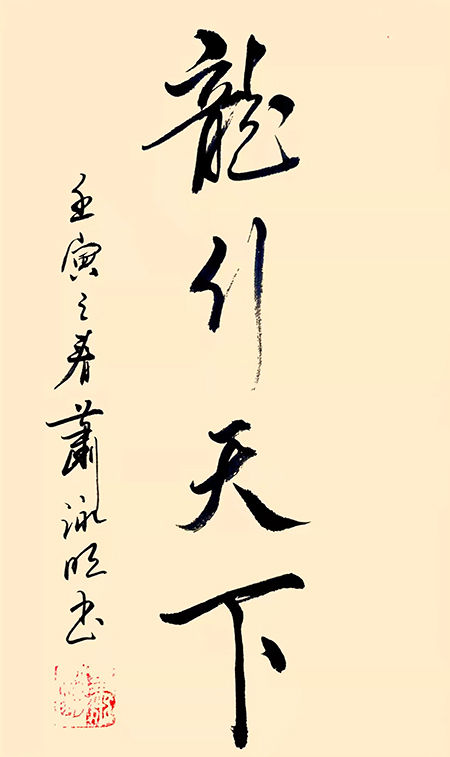 龍行天下
壬寅之春蕭泳明書